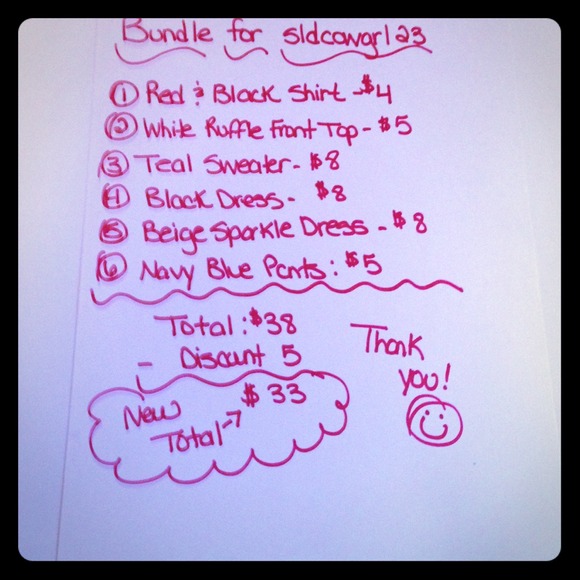 Bundle for sldcowgrl23
① Red & Black Shirt - $4
② White Ruffle Front Top - $5
③ Teal Sweater - $8
④ Black Dress - $8
⑤ Beige Sparkle Dress - $8
⑥ Navy Blue Pants : $5
Total : $38
- Discount 5
New Total → $33
Thank you!